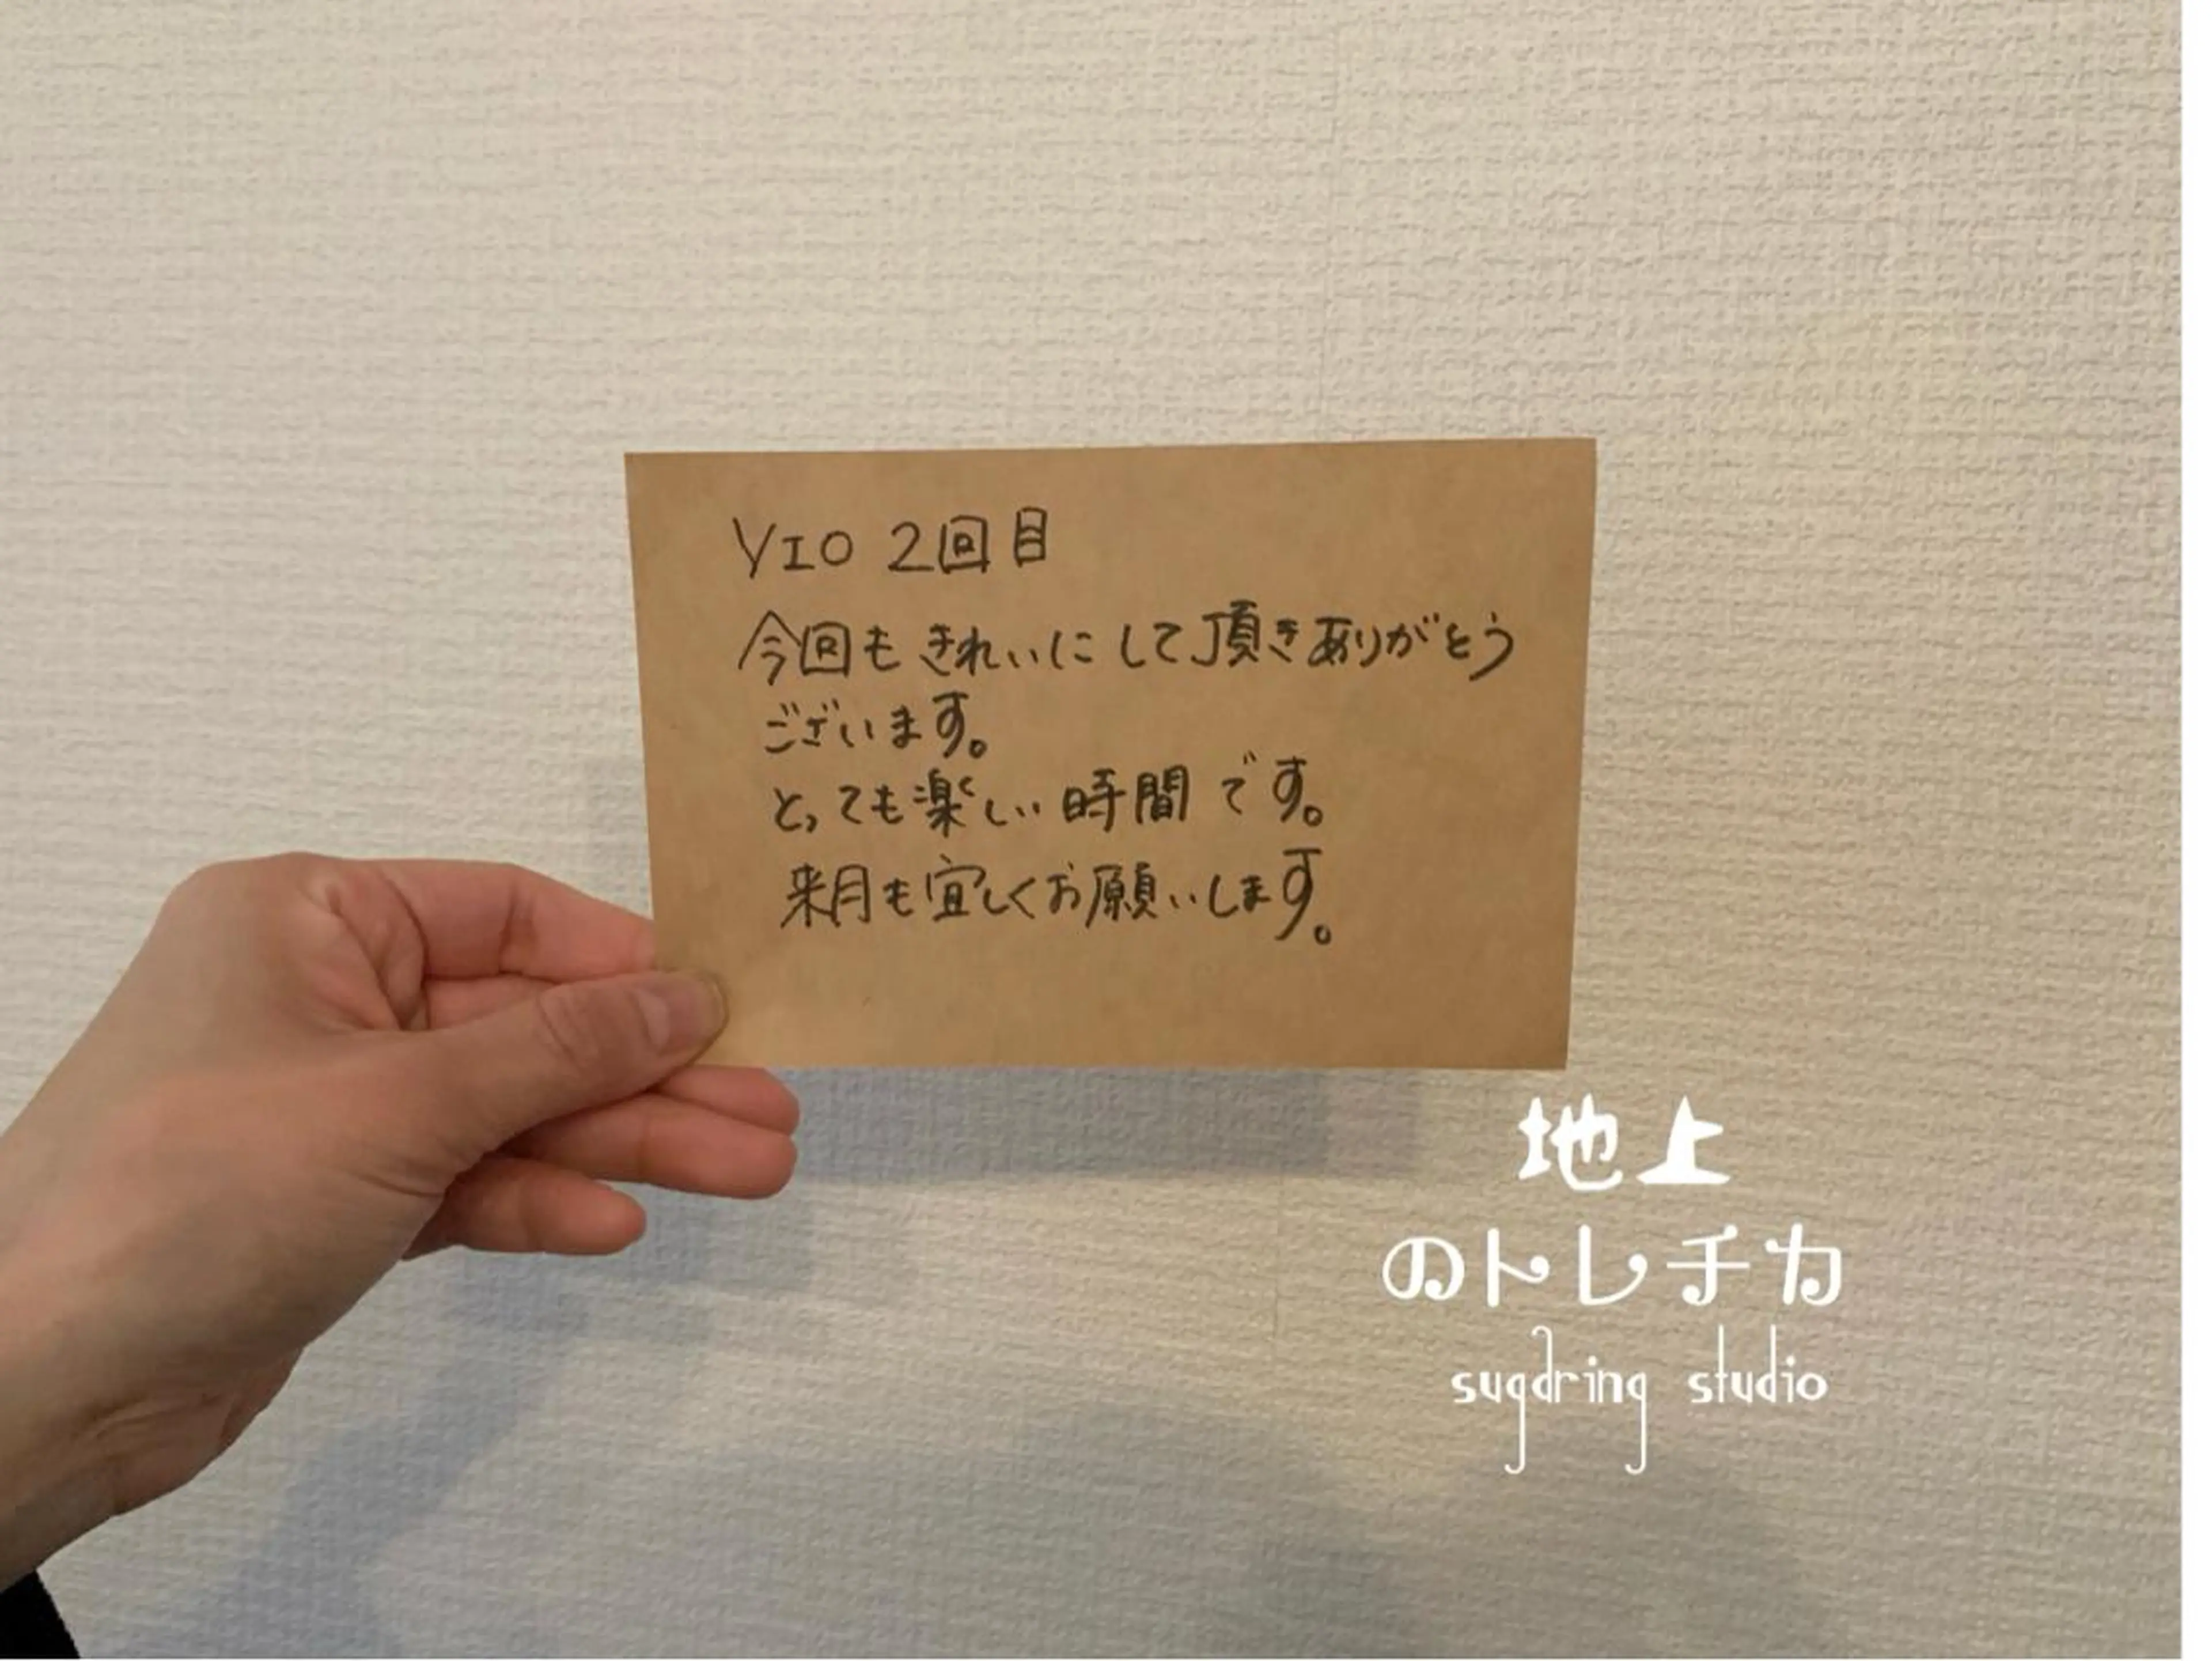 VIO 2回目
今回もきれいにして頂きありがとう
ございます。
とっても楽しい時間です。
来月も宜しくお願いします。
地上
のトレチカ
sugdring studio